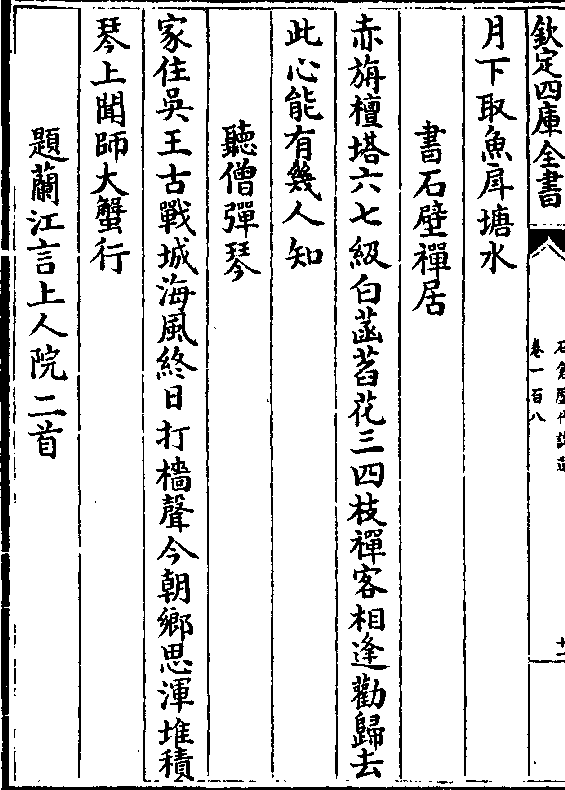 欽定四庫全書
石倉歷代詩選
卷一百八
月下取魚戽塘水
書石壁禪居
赤旃檀塔六七級白菡萏花三四枝禪客相逢勸歸去
此心能有幾人知
聽僧彈琴
家住吳王古戰城海風終日打檣聲今朝鄉思渾堆積
琴上聞師大蟹行
題蘭江言上人院二首